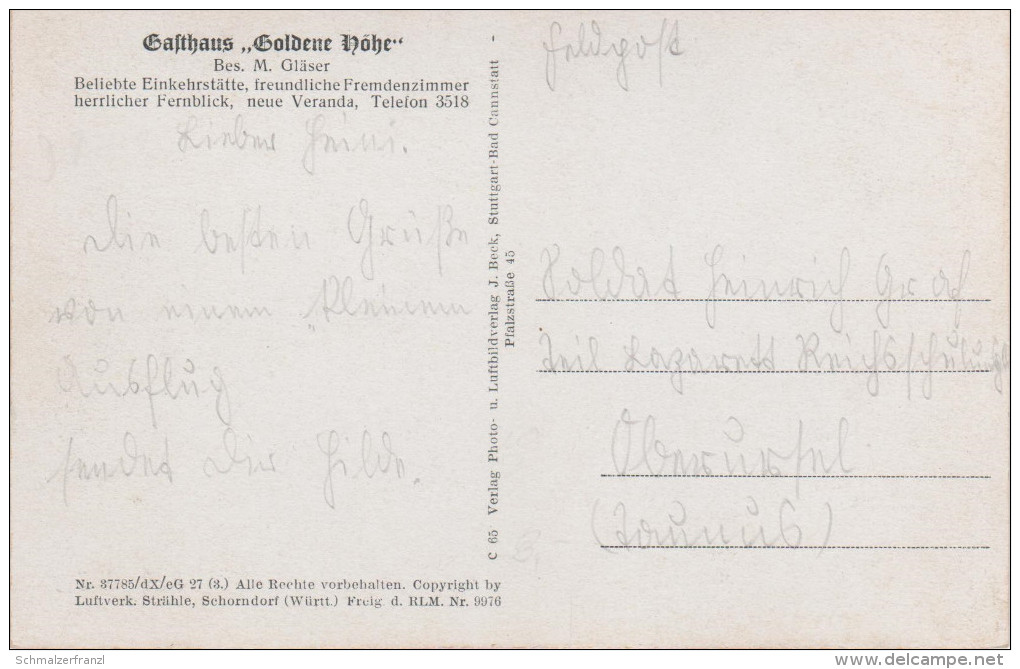 Gasthaus „Goldene Höhe“
Bes. M. Gläser
Beliebte Einkehrstätte, freundliche Fremdenzimmer
herrlicher Fernblick, neue Veranda, Telefon 3518
Lieber Heini.
Die besten Grüße
von einem "kleinen
Ausflug
sendet Dir Hilde.
Nr. 37785/dX/eG 27 (3.) Alle Rechte vorbehalten. Copyright by
Luftverk. Strähle, Schorndorf (Württ.) Freig. d. RLM. Nr. 9976
C 65 Verlag Photo- u. Luftbildverlag J. Beck, Stuttgart-Bad Cannstatt -
Pfalzstraße 45
Feldpost
Soldat Heinrich Graf
Teil Lazarett
Oberursel
(Taunus)
3,-
Schmalzerfranzl
www.delcampe.net